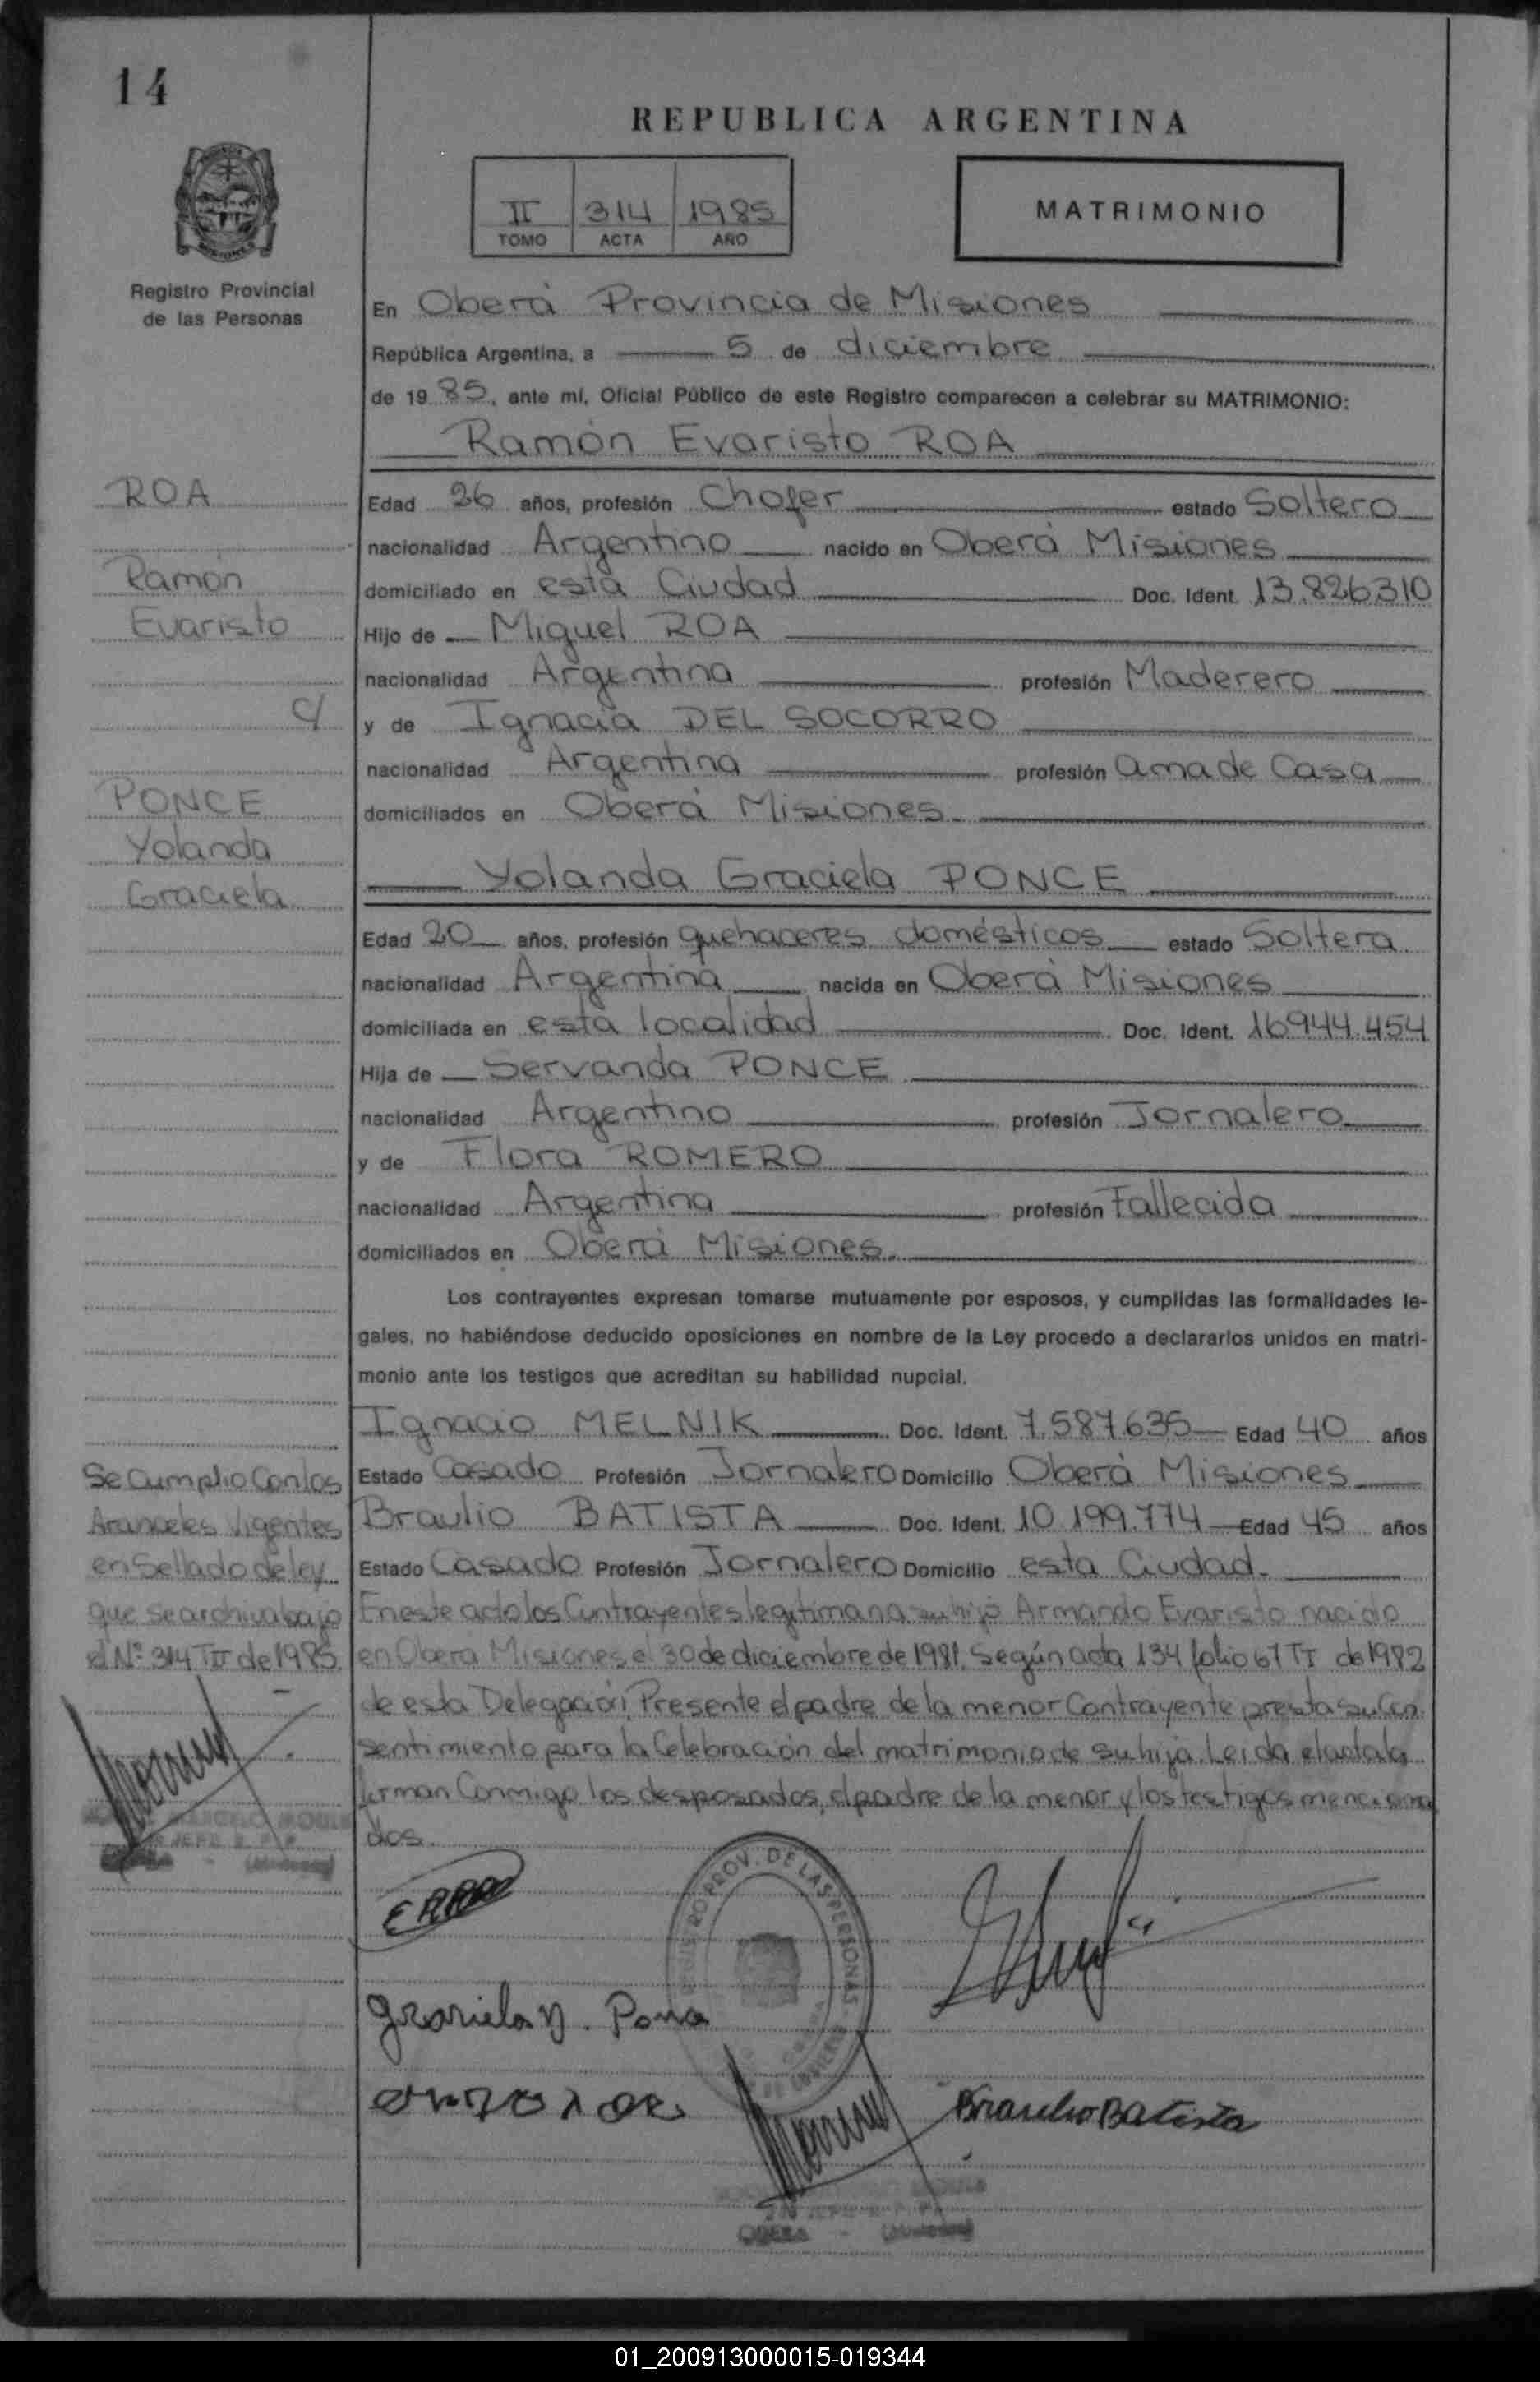 14
REPUBLICA ARGENTINA
II 314 1985
TOMO ACTA AÑO
MATRIMONIO
Registro Provincial
de las Personas
En Oberá Provincia de Misiones
República Argentina, a 5 de diciembre
de 1985, ante mí, Oficial Público de este Registro comparecen a celebrar su MATRIMONIO:
Ramón Evaristo ROA
ROA
Ramón
Evaristo
c/
PONCE
Yolanda
Graciela
Edad 26 años, profesión Chofer estado Soltero
nacionalidad Argentino nacido en Oberá Misiones
domiciliado en esta Ciudad Doc. Ident. 13.826310
Hijo de Miguel ROA
nacionalidad Argentina profesión Maderero
y de Ignacia DEL SOCORRO
nacionalidad Argentina profesión ama de Casa
domiciliados en Oberá Misiones.
Yolanda Graciela PONCE
Edad 20 años, profesión quehaceres domésticos estado Soltera
nacionalidad Argentina nacida en Oberá Misiones
domiciliada en esta localidad Doc. Ident. 16944.454
Hija de Servanda PONCE
nacionalidad Argentino profesión Jornalero
y de Flora ROMERO
nacionalidad Argentina profesión Fallecida
domiciliados en Oberá Misiones.
Los contrayentes expresan tomarse mutuamente por esposos, y cumplidas las formalidades le-
gales, no habiéndose deducido oposiciones en nombre de la Ley procedo a declararlos unidos en matri-
monio ante los testigos que acreditan su habilidad nupcial.
Ignacio MELNIK Doc. Ident. 7.587.635 Edad 40 años
Estado Casado Profesión Jornalero Domicilio Oberá Misiones
Braulio BATISTA Doc. Ident. 10.199.774 Edad 45 años
Estado Casado Profesión Jornalero Domicilio esta Ciudad.
En este acto los Contrayentes legitiman a su hijo Armando Evaristo nacido
en Oberá Misiones el 30 de diciembre de 1981. Según acta 134 folio 67 TI de 1982
de esta Delegación, Presente el padre de la menor Contrayente presta su Con
sentimiento para la Celebración del matrimonio de su hija. Leída el acta la
firman Conmigo los desposados, el padre de la menor y los testigos menciona
dos.
Se Cumplio Con los
Aranceles Vigentes
en Sellado de ley
que se archiva bajo
el Nº 314 TII de 1985.
REGISTRO PROV. DE LAS PERSONAS
Graciela Y. Ponce
Braulio Batista
OBERA - (Misiones)
01_200913000015-019344